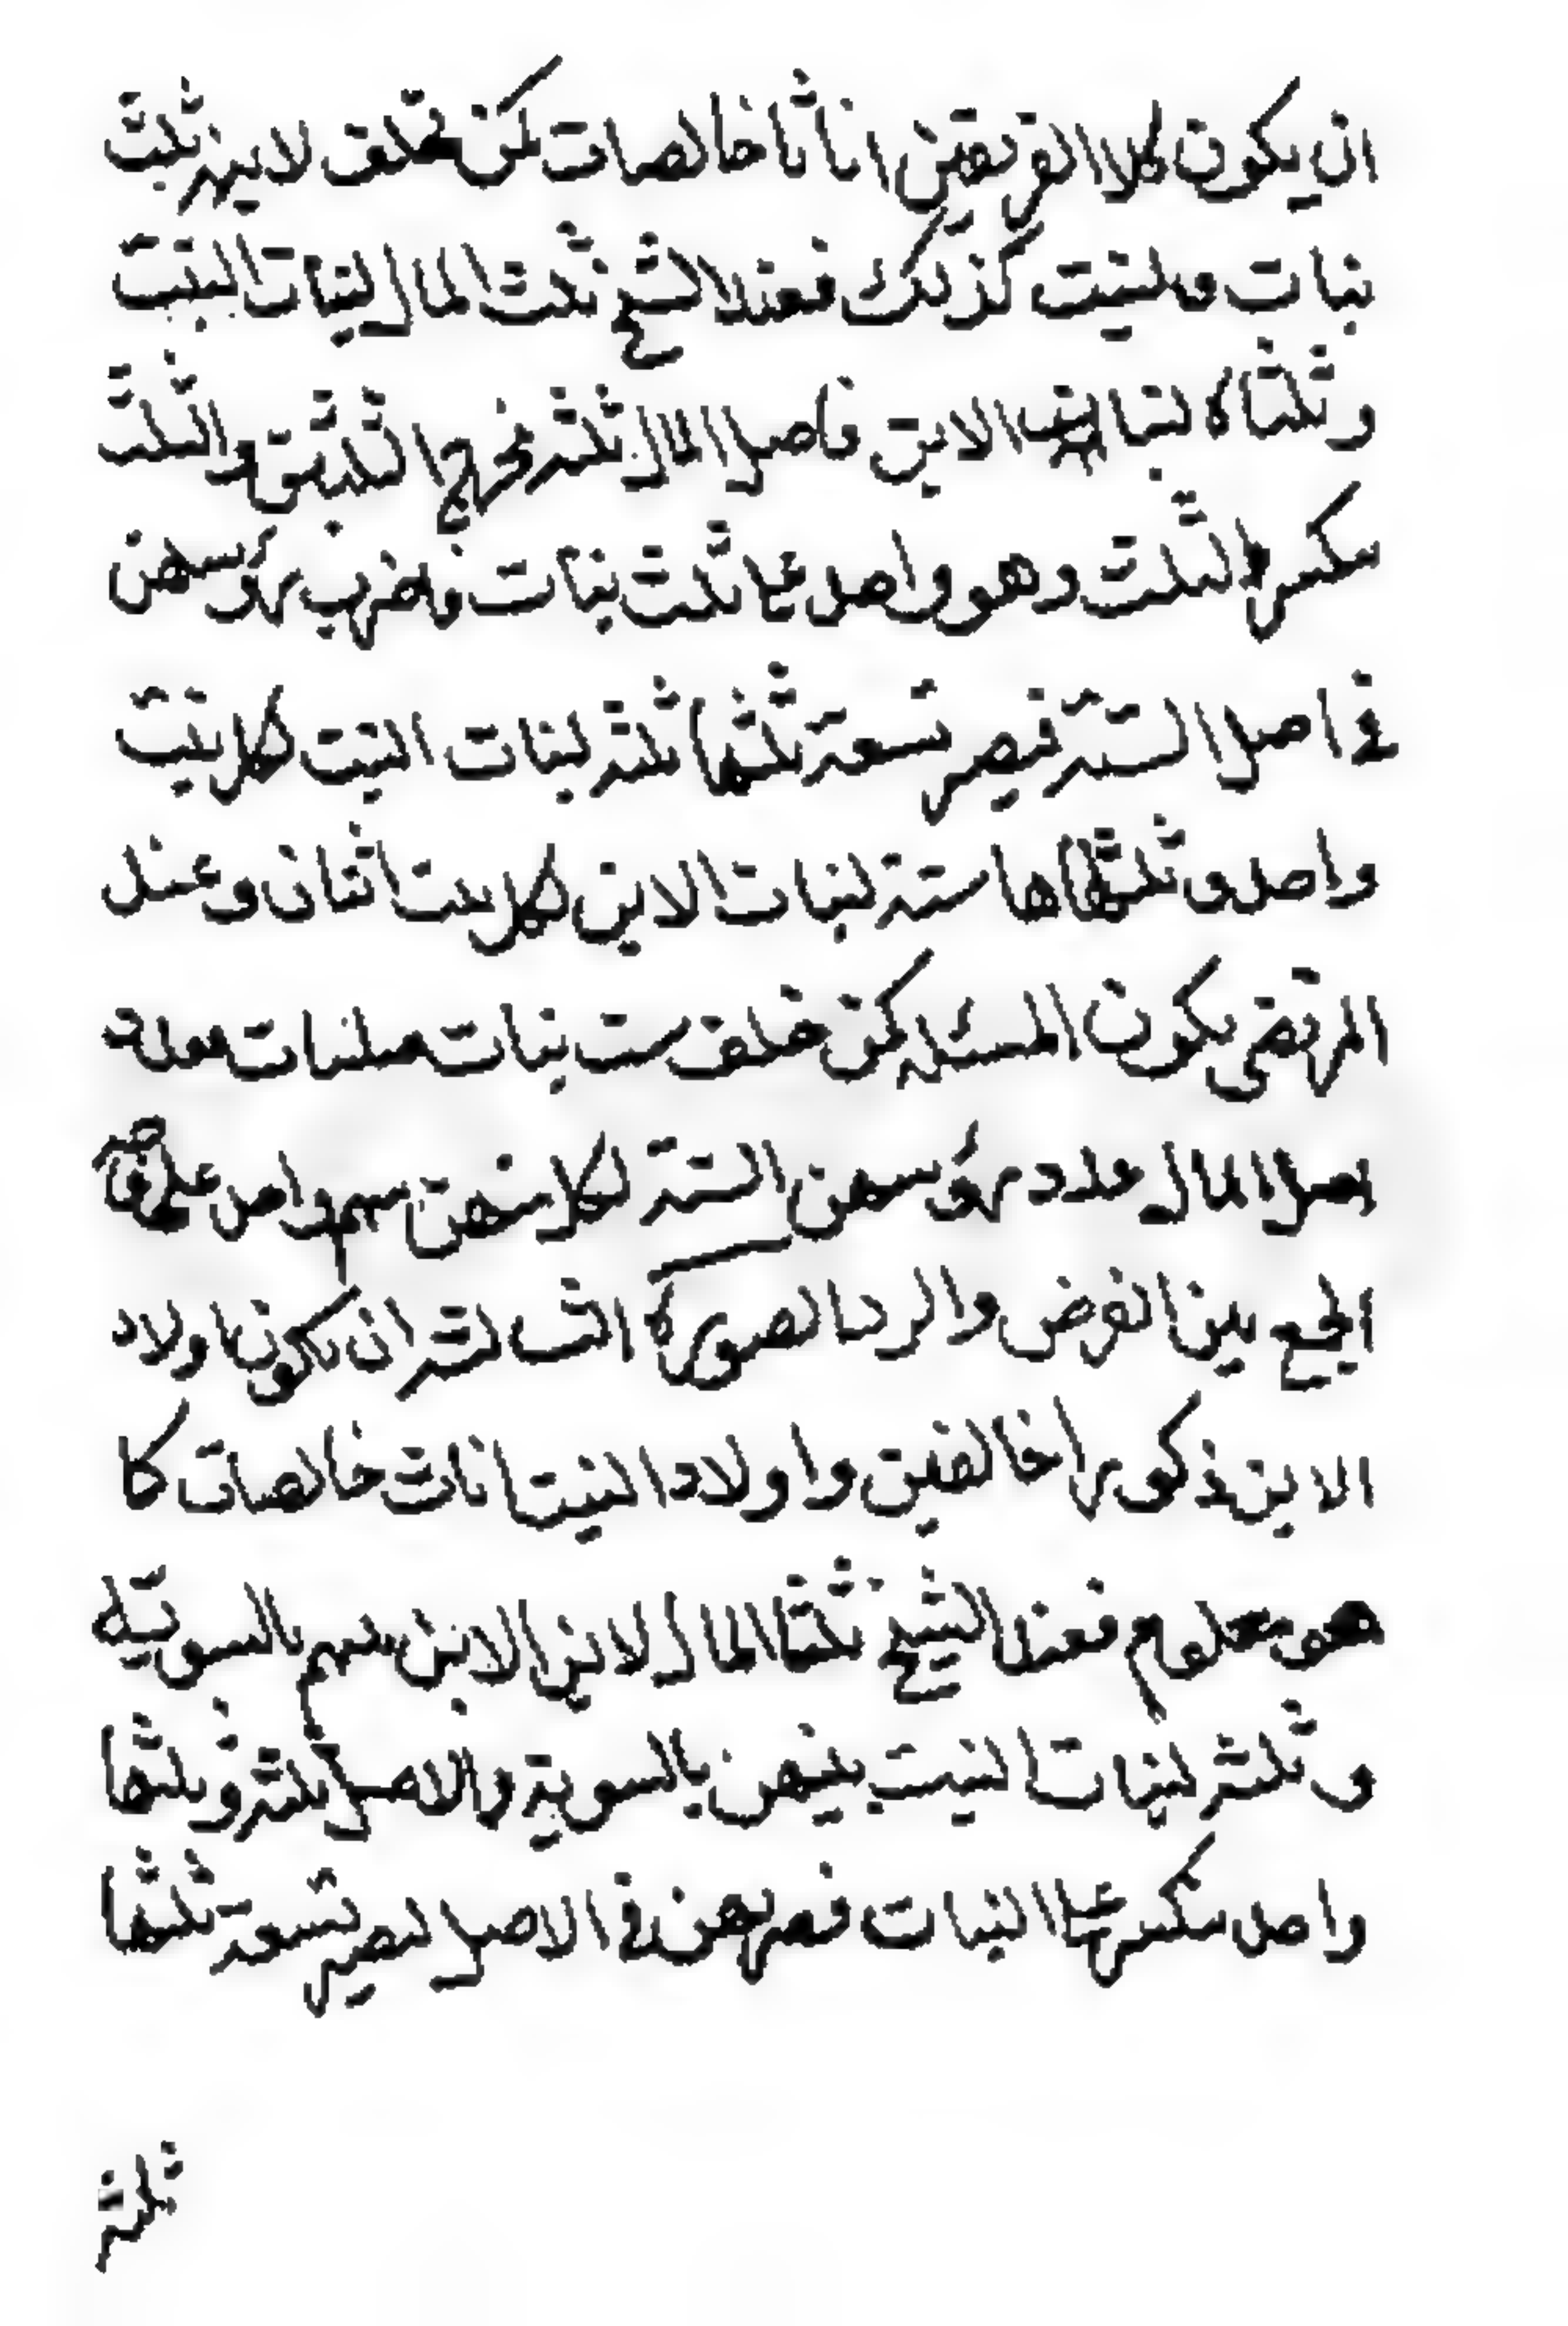 ان يكون كلا الفريقين اناثا خالصات كمن تخلف لابنه ثلث
بنات وللبنت كذلك فعند الشيخ ثلث المال لبنات البنت
وثلثاه لبنات الابن فاصل المال ثلثة مخرجا لثلثين والثلث
ينكسر الثلث وهو واحد على ثلث بنات فاضرب رؤسهن
في اصل الستة فيصير تسعة ثلثها ثلثة لبنات البنت لكل بنت
واحد وثلثاها ستة لبنات الابن لكل بنت اثنان وعند
المرتضى يكون المسئلة كمن خلف ست بنات صلبيات
اصل المال عدد رؤسهن الستة لكل منهن سهم واحد على
الجمع بين الفرض والرد الصورة الثالثة ان يكون اولاد
الابن ذكورا خالصين واولاد البنت اناث خالصات كا
هو معلوم فعند الشيخ ثلثا المال لابن الابن بينهم بالسوية
وثلثه لبنات البنت بينهن بالسوية والاصل ثلثة وثلثها
واحد ينكسر على البنات فضربهن في الاصل ليصير تسعة ثلثها
ثلثة